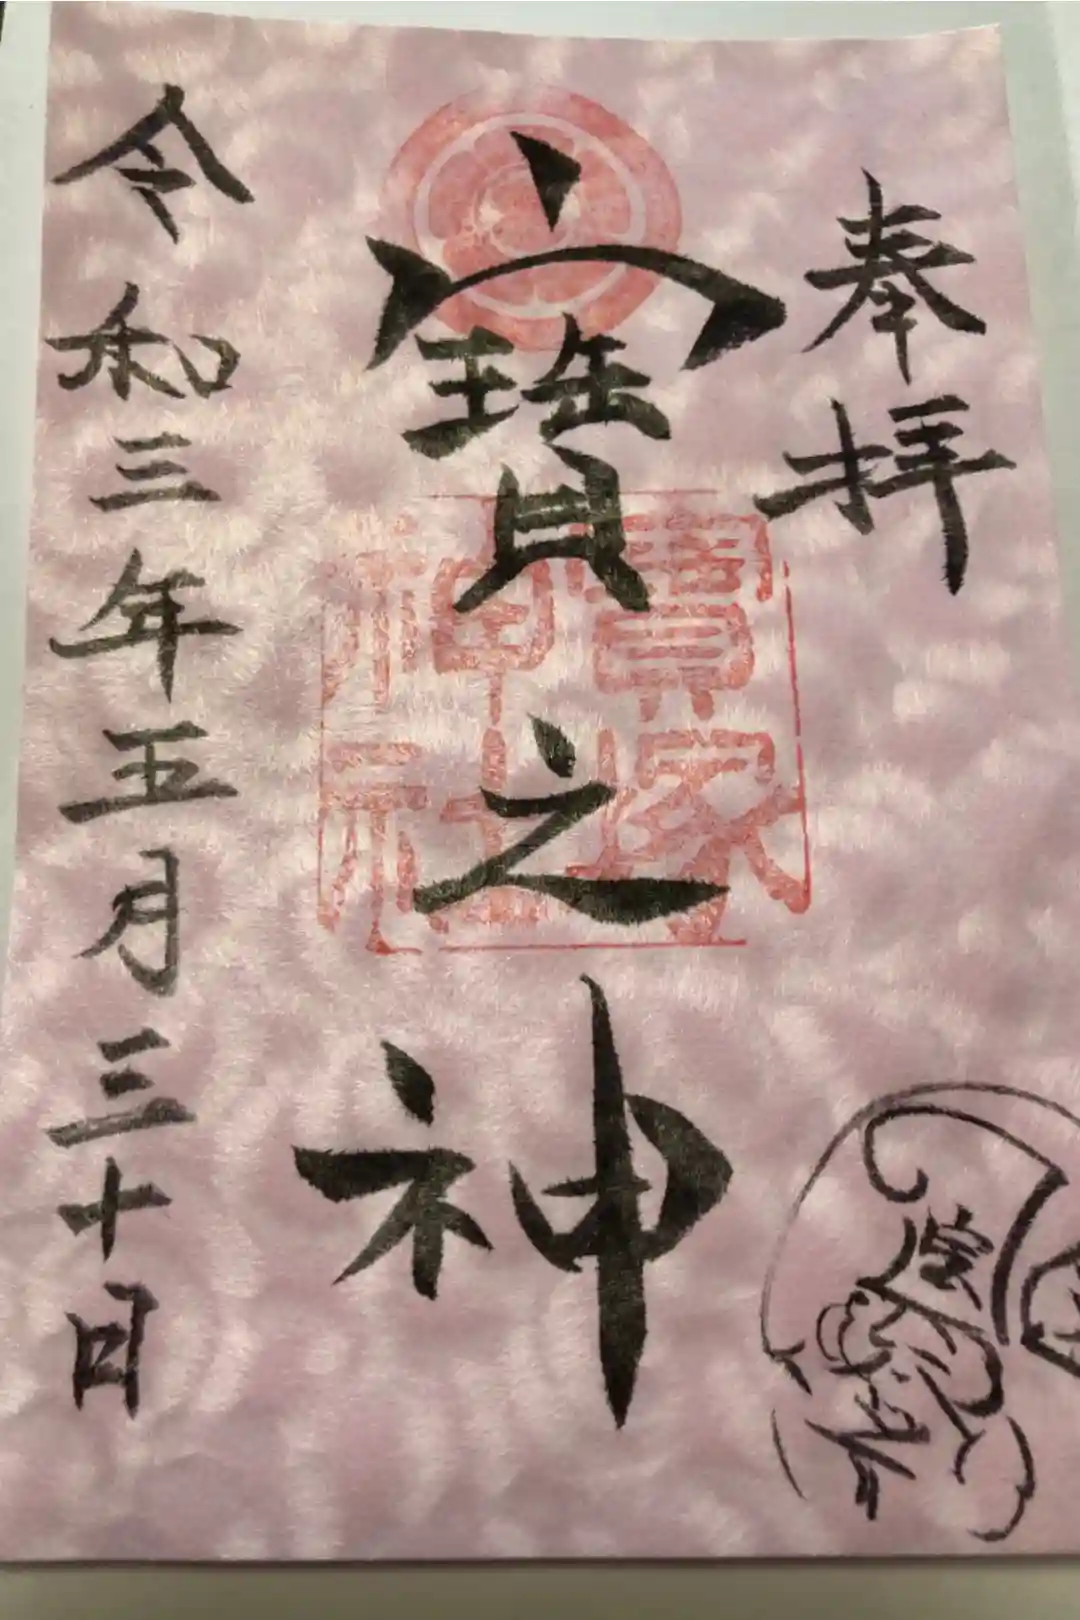 奉拝
寳之神
寳家
神社
令和三年五月三十日